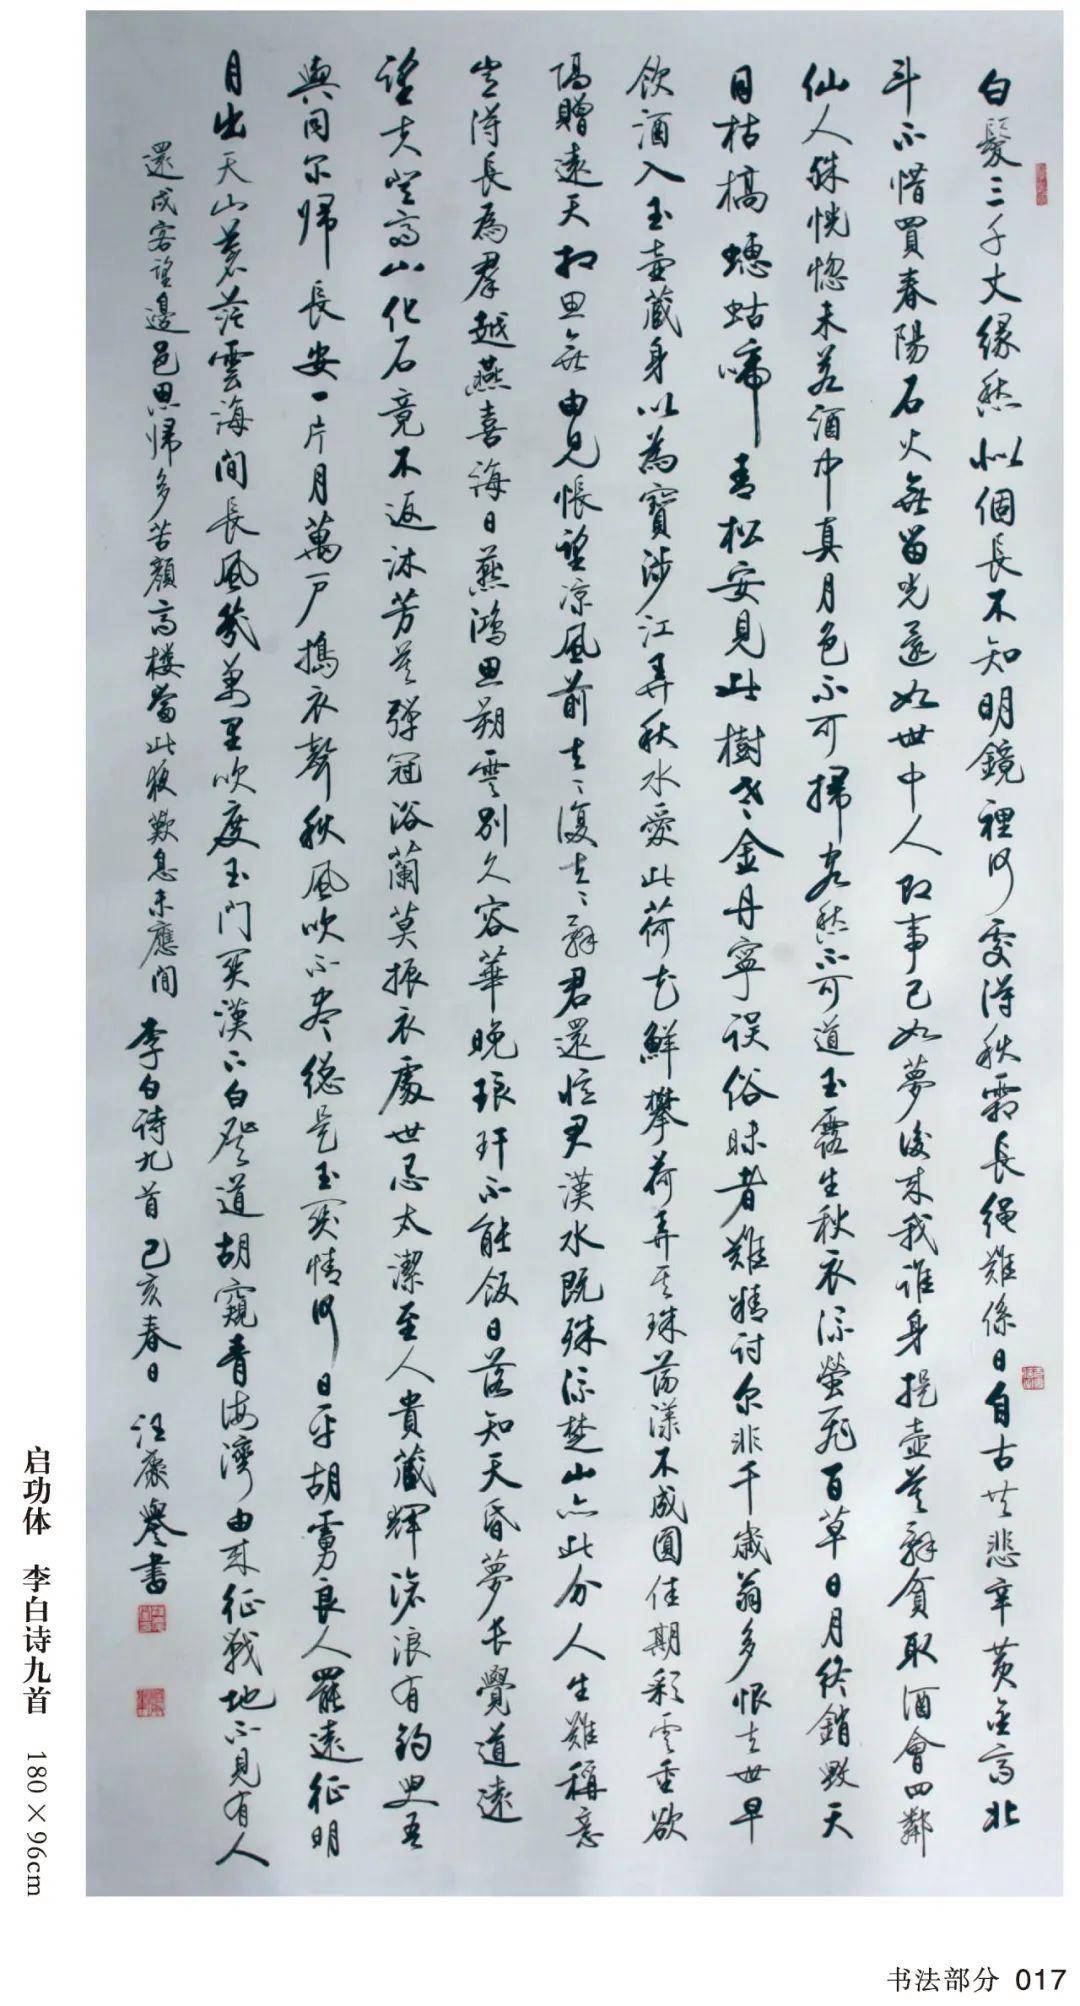 白髮三千丈緣愁似個長不知明鏡裡何處得秋霜長繩難係日自古共悲辛黃金高北
斗不惜買春陽石火無留光還如世中人即事已如夢後來我誰身提壺莫辭貧取酒會四鄰
仙人殊恍惚未若酒中真月色不可掃客愁不可道玉露生秋衣流螢飛百草日月終銷毀天
同枯槁蟪蛄啼青松安見此樹老金丹寧誤俗昧者難精討尔非千歲翁多恨去世早
飲酒入玉壺藏身以為寶涉江弄秋水愛此荷花鮮攀荷弄其珠蕩漾不成圓佳期彩雲重欲
隔贈遠天相思無由見悵望涼風前去〻復去〻辭君還憶君漢水既殊流楚山亦此分人生難稱意
豈得長為群越燕喜海日燕鴻思朔雲別久容華晚琅玕不能飯日落知天昏夢長覺道遠
望夫登高山化石竟不返沐芳莫彈冠浴蘭莫振衣處世忌太潔至人貴藏輝滄浪有釣叟吾
與同尔歸長安一片月萬戶搗衣聲秋風吹不盡總是玉關情何日平胡虜良人罷遠征明
月出天山蒼茫雲海間長風幾萬里吹度玉門關漢下白登道胡窺青海灣由來征戰地不見有人
還戍客望邊邑思歸多苦顏高樓當此夜歎息未應間 李白诗九首 己亥春日 汪康譽書
启功体 李白诗九首 180×96cm
书法部分 017